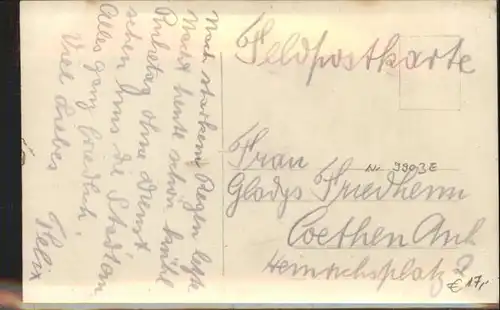 Feldpostkarte
Nach starkem Regen letzte
Nacht heute schön kühl
Ruhetag ohne Dienst
sehen uns die Stadt an
Alles ganz friedlich.
Viel Liebes
Felix
Nr. 3903E
Frau
Gladys Friedheim
Coethen Anh.
Heinrichsplatz 2
€ 17,-